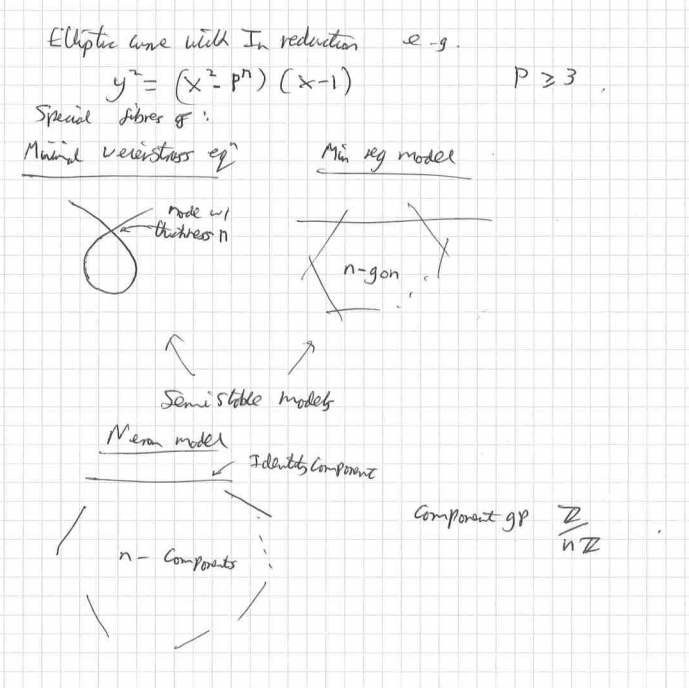 Elliptic curve with In reduction e-g.
y² = (x² - pⁿ) (x-1) p ≥ 3 .
Special fibres of :
Minimal weierstrass eqⁿ
Min reg model
node w/
thickness n
n-gon
Semistable models
Neron model
Identity Component
n - Components
Component gp ℤ/nℤ